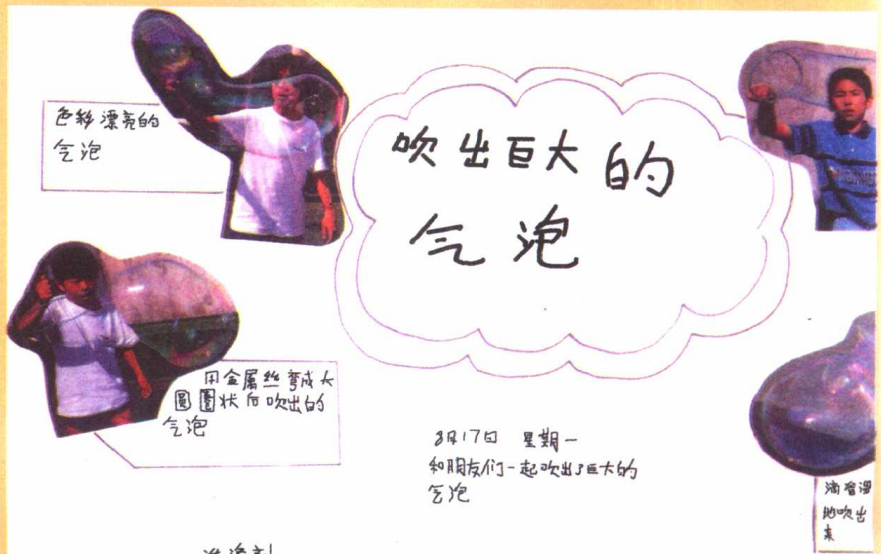 吹出巨大的
气泡
色彩漂亮的
气泡
用金属丝弯成大
圆圈状后吹出的
气泡
8月17日 星期一
和朋友们一起吹出了巨大的
气泡
地吹出
来